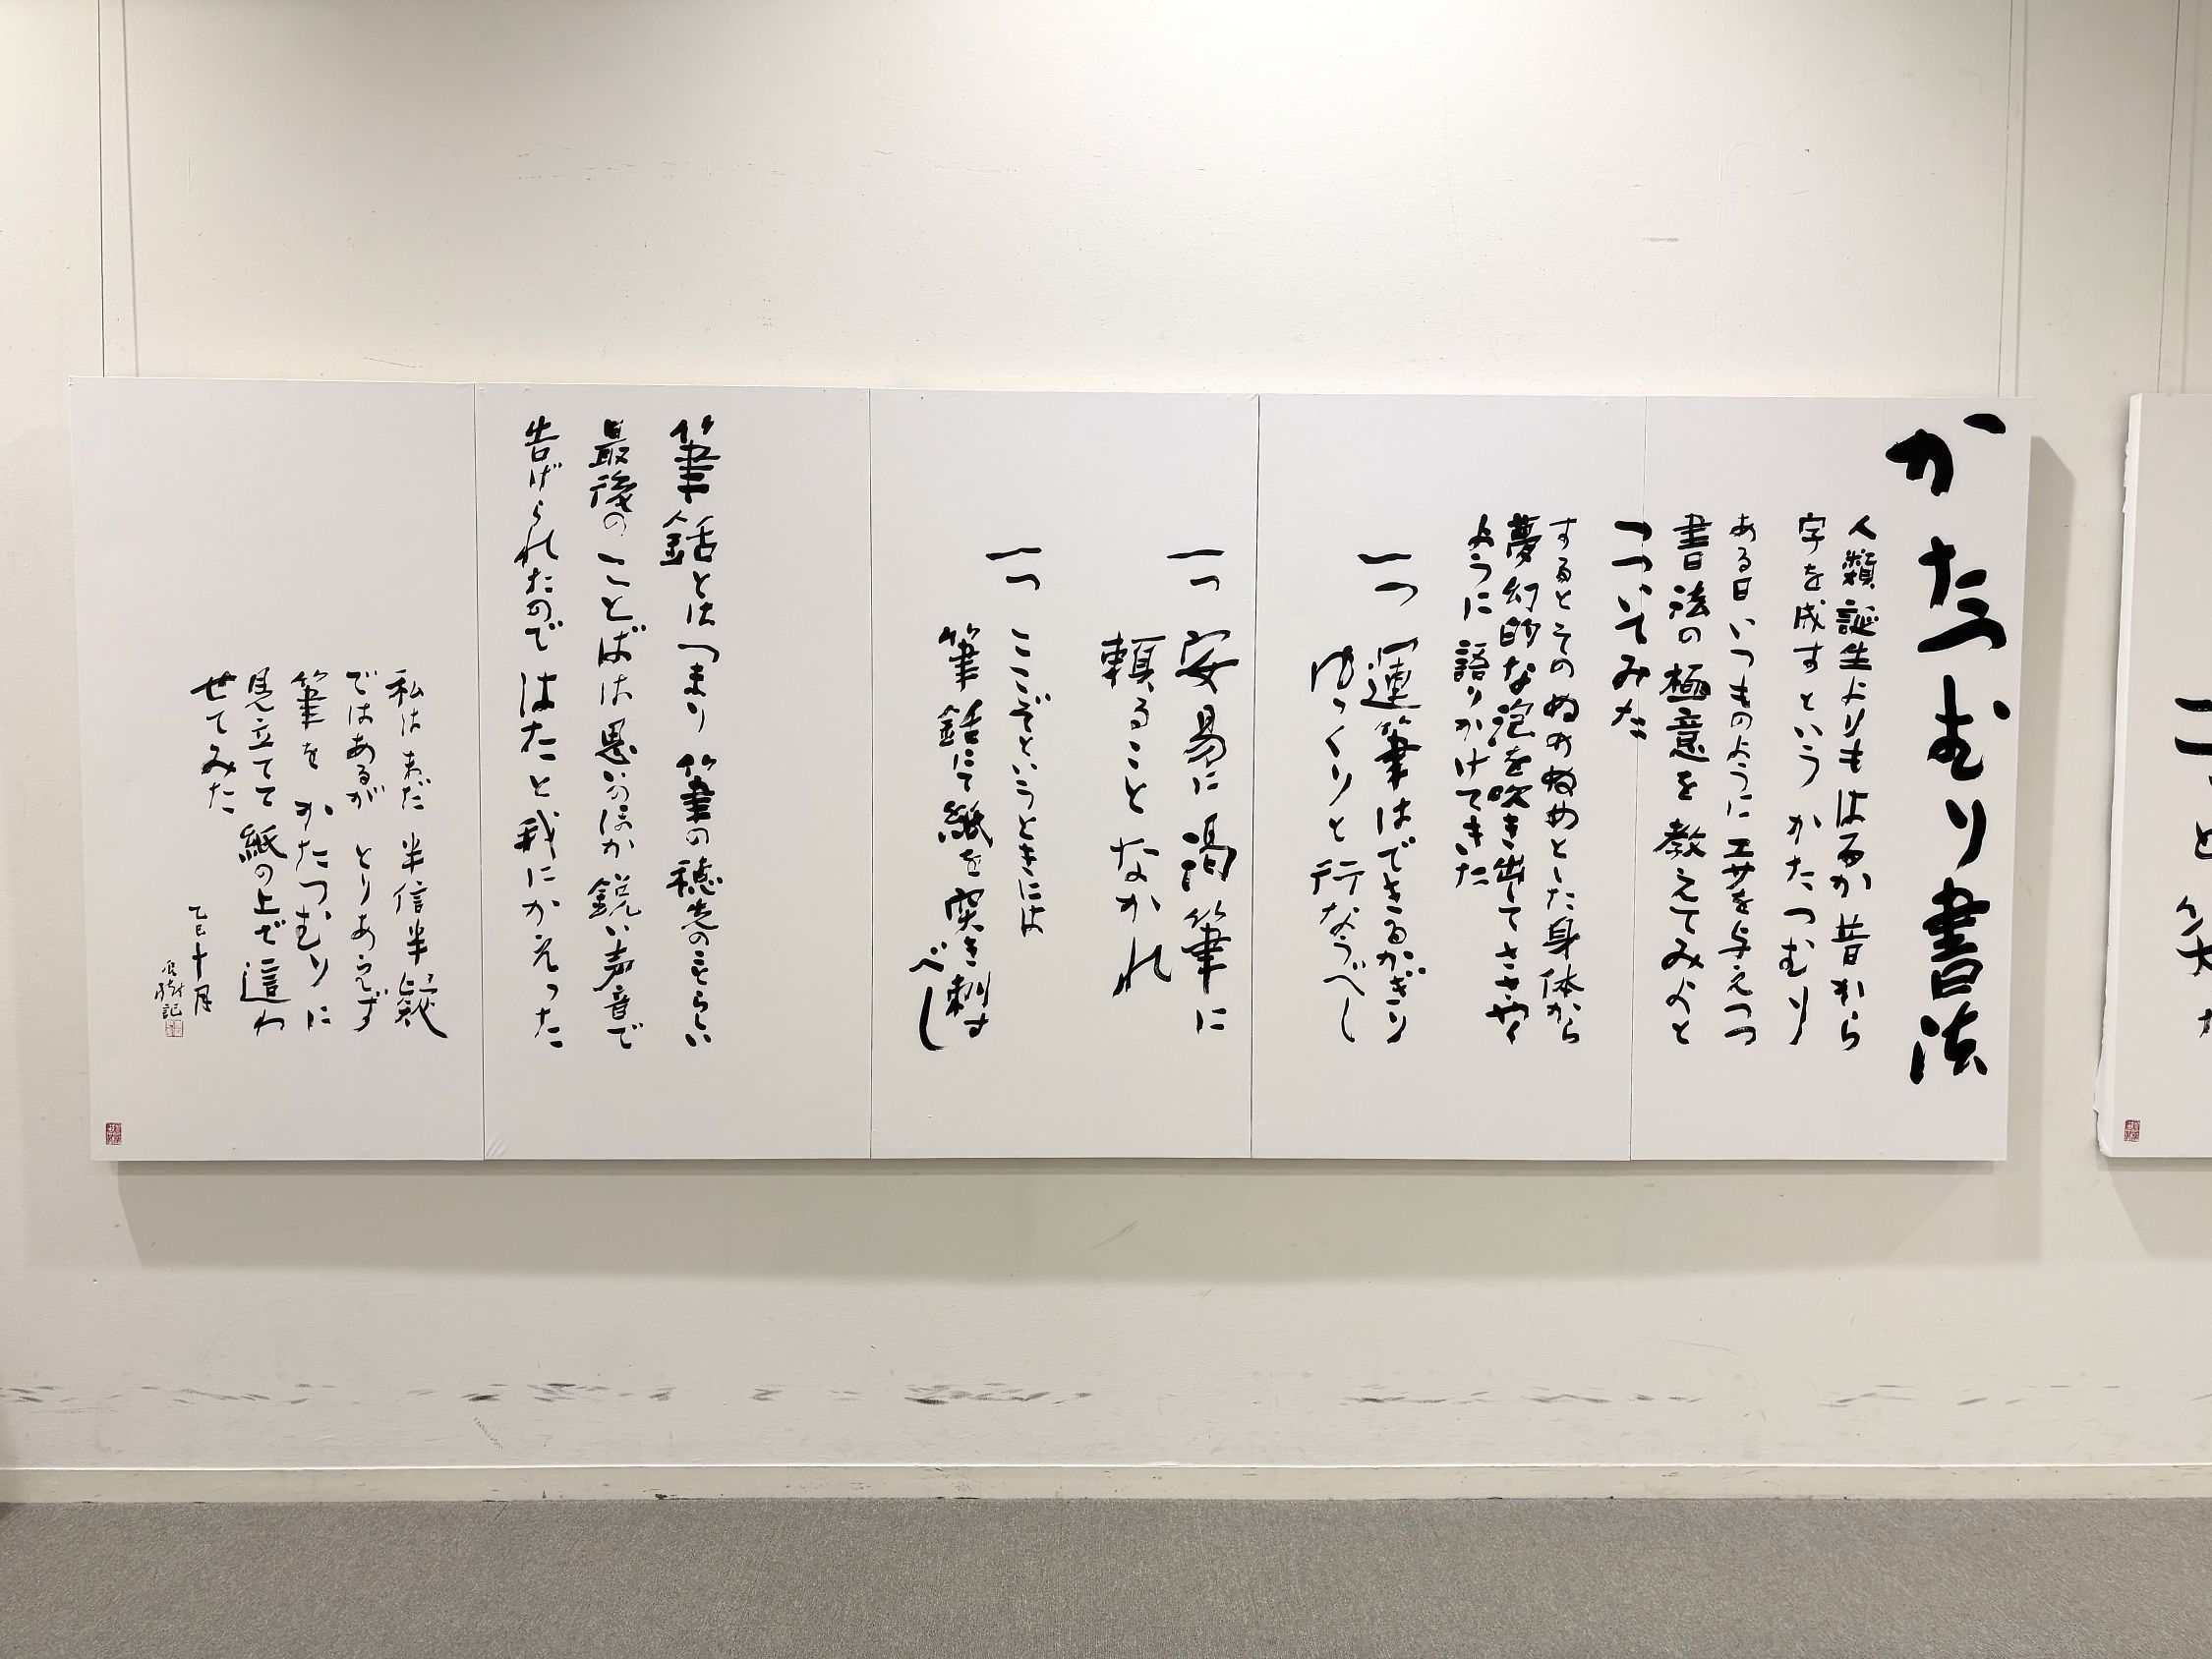 かたつむり書法
人類誕生よりもはるか昔から
字を成すという かたつむり
ある日いつものようにエサを与えつつ
書法の極意を教えてみよと
つついてみた
するとそのぬめぬめとした身体から
夢幻的な泡を吹き出して ささやく
ように語りかけてきた
一つ 運筆はできるかぎり
ゆっくりと行なうべし
一つ 安易に渇筆に
頼ることなかれ
一つ ここぞというときには
筆銛にて紙を突き刺す
べし
筆銛とはつまり 筆の穂先のことらしい
最後のことばは思いのほか鋭い声音で
告げられたので はたと我にかえった
私はまだ 半信半疑
ではあるが とりあえず
筆を かたつむりに
見立てて 紙の上で這わ
せてみた
乙巳十月